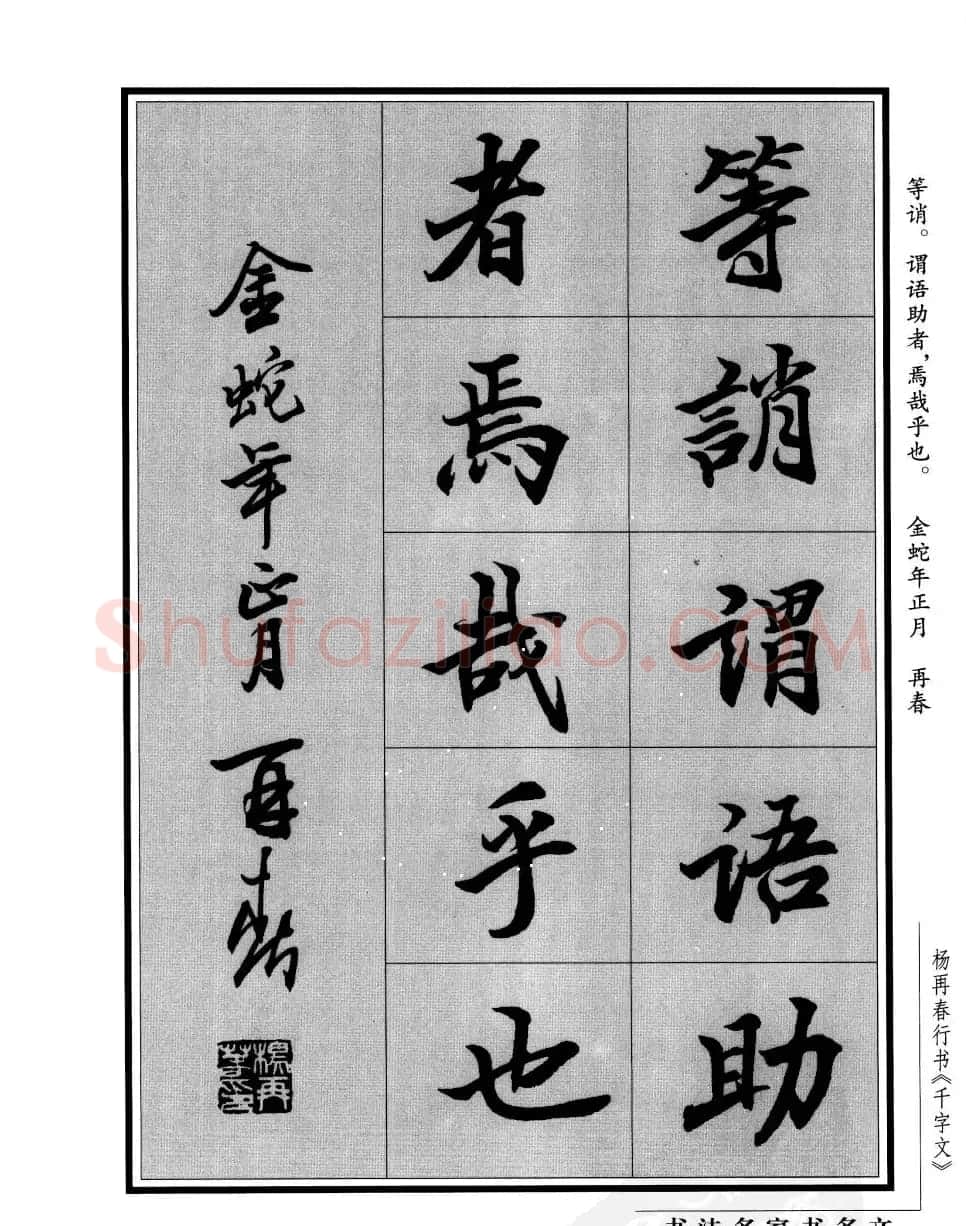 等誚謂語助
者焉哉乎也
金蛇年正月 再春
楊再春印
等诮。谓语助者,焉哉乎也。 金蛇年正月 再春
杨再春行书《千字文》
Shufaziliao.COM